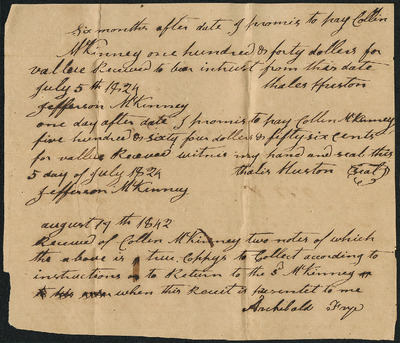 Six months after date I promis to pay Collin
McKinney one hundred & forty dollers for
vallue Received to bear intrust from this date
July 5th 1824 thales Huston
Jefferson McKinney
one day after date I promis to pay Collin McKinney
five hundred & sixty four dollers & fifty six cents
for vallue Received witness my hand and seal this
5 day of July 1824 Thalis Huston (seal)
Jefferson McKinney
august 19th 1842
Received of Collin McKinney two notes of which
the above is true Coppys to Collect acording to
instructions or to Return to the sd McKinney
when this Receit is presentet to me
Archibald Frye